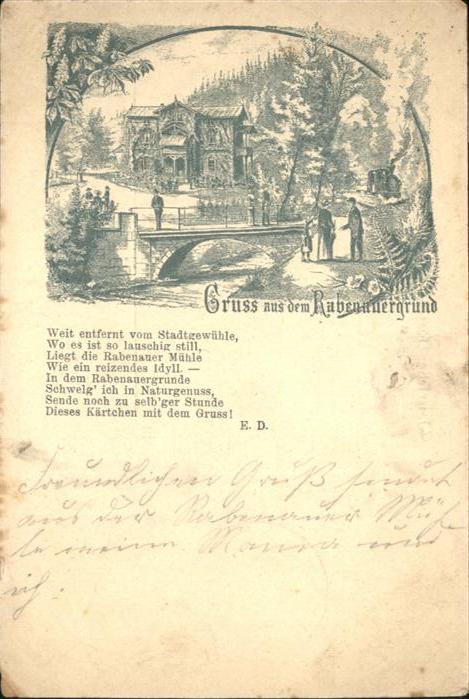 Gruss aus dem Rabenauergrund
Weit entfernt vom Stadtgewühle,
Wo es ist so lauschig still,
Liegt die Rabenauer Mühle
Wie ein reizendes Idyll. —
In dem Rabenauergrunde
Schwelg' ich in Naturgenuss,
Sende noch zu selb'ger Stunde
Dieses Kärtchen mit dem Gruss!
E. D.
Freundlichen Gruß sendet
aus der Rabenauer Müh-
le meine Mama und
ich.